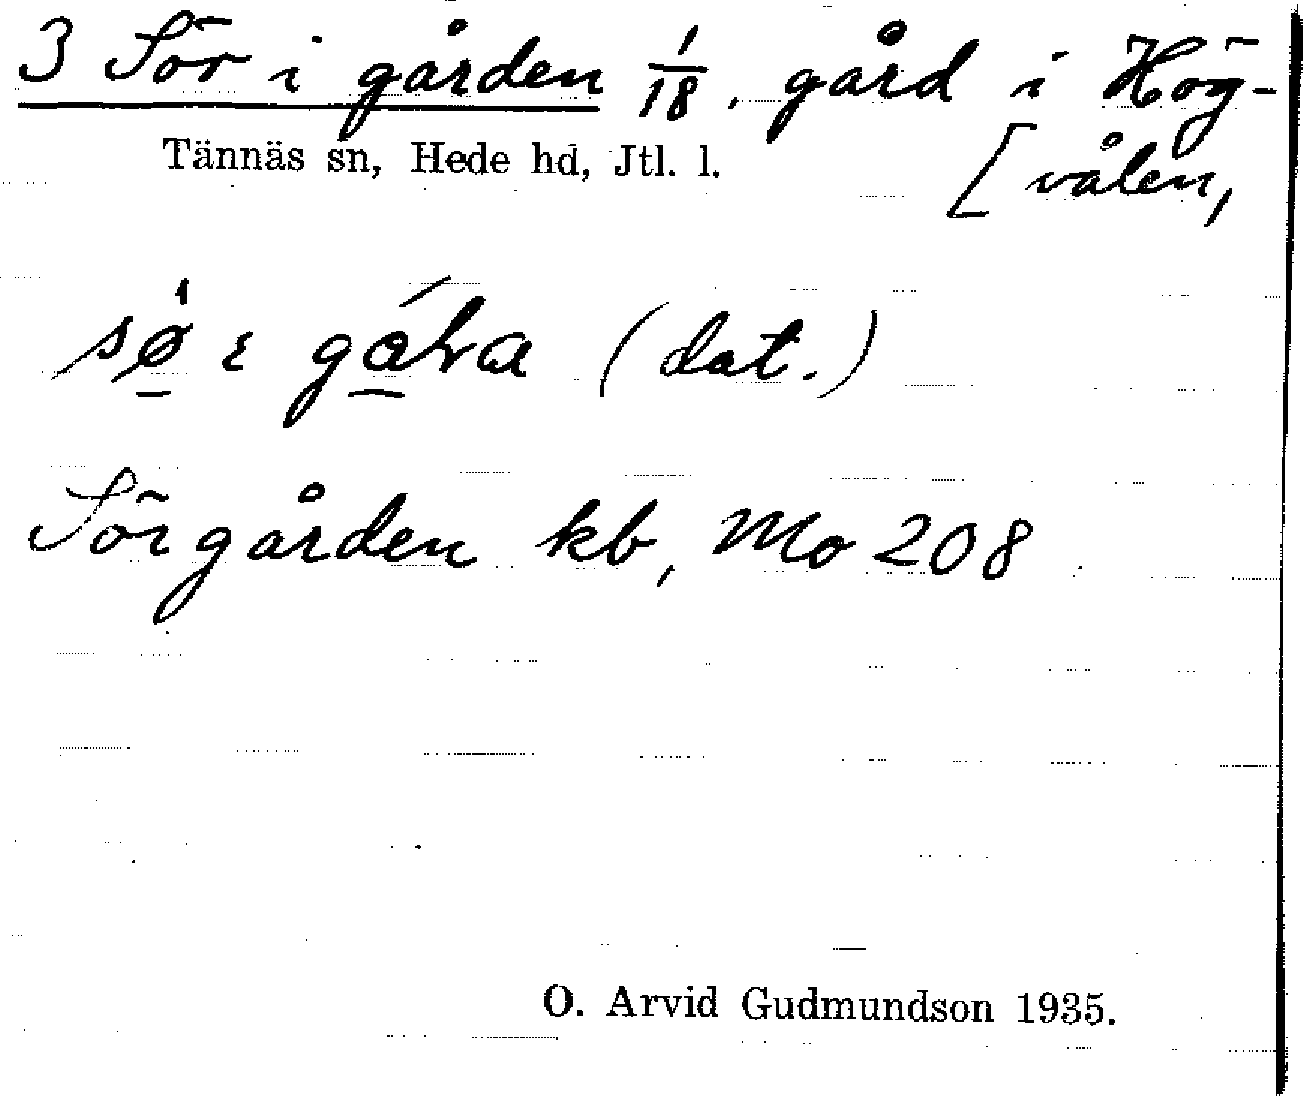 3 Sör i gården 1/18. gård i Hög-
[vålen,
Tännäs sn, Hede hd, Jtl. l.
(dat.)
Sörgården kb, Mo 208
O. Arvid Gudmundson 1935.